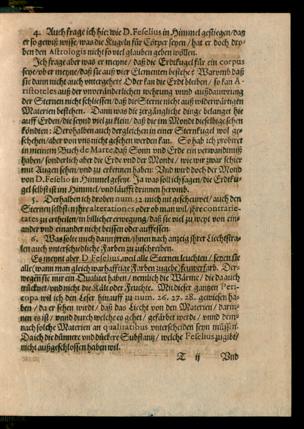 4. Auch frage ich hie: wie D. Feselius in Himmel gestiegen/ daß
er so gewiß wisse/ was die Kugeln für Cörper seyen/ hat er doch dro-
ben den Astrologis nicht so viel glauben geben wöllen.
Ich frage aber was er meyne/ daß die Erdtkugel für ein corpus
seye/ ober meyne/ daß sie auß vier Elementen bestehe? Warumb daß
sie dann nicht auch untergehet? Oder kan die Erdt bleiben/ so kan A-
ristoteles auß der unveränderlichen wehrung unnd außdaurung
der Sternen nicht schliessen/ daß die Sterne nicht auß widerwärtigen
Materien bestehen. Dann was die zergängliche dinge belanget hie
auff Erden/ die seynd viel zu klein/ daß die im Monde diesselbe gesehen
köndten: Derohalben auch dergleichen in einer Sternkugel wol ge-
schehen/ aber von uns nicht gesehen werden kan. So hab ich probirt
in meinem Buch de Marte, daß Sonn und Erde ein verwandtnuß
haben/ sonderlich aber die Erde und der Monde/ wie wir zwar schier
mit Augen sehen/ und zu erkennen haben: Und wird doch der Mond
von D. Feselio in Himmel gesetzt. Ja was soll ich sagen/ die Erdtku-
gel selbst ist im Himmel/ und läufft drinnen herumb.
5. Derhalben ich droben num. 12 mich nit gescheuwet/ auch den
Sternen selbst
ihrer alterationes, oder ob man wil/ ihre contrarie-
tates zu ertheilen/ in billicher erwegung/ daß sie viel zu weyt von ein-
ander und einander nicht beissen oder auffessen.
6. Was solte mich dann irren/ ihnen nach anzeig ihrer Liechtstra-
len auch unterschiedliche Farben zuzuschreiben.
Es meynt aber D. Feselius, weil alle Sternen leuchten/ seyen sie
alle (wann man gleich warhafftige Farben zugebe) feuwerfarb. Der-
wegen sie nur ein Qualitet haben/ nemlich die Wärme/ die da auch
trückne/ und nicht die Kält oder Feuchte. Mit dieser gantzen Peri-
copa wil ich den Leser hinauff zu num. 26. 27. 28. gewiesen ha-
ben/ da er sehen wirdt/ daß das Liecht von den Materien/ darin-
nen es ist/ unnd durch welche es gehet/ gefärbet werde/ unnd dem-
nach solche Materien an qualitatibus unterscheiden seyn müssen.
Da ich die dünnere und dückere Substantz/ welche Feselius zugibt/
nicht außgeschlossen haben wil.
T ij Und